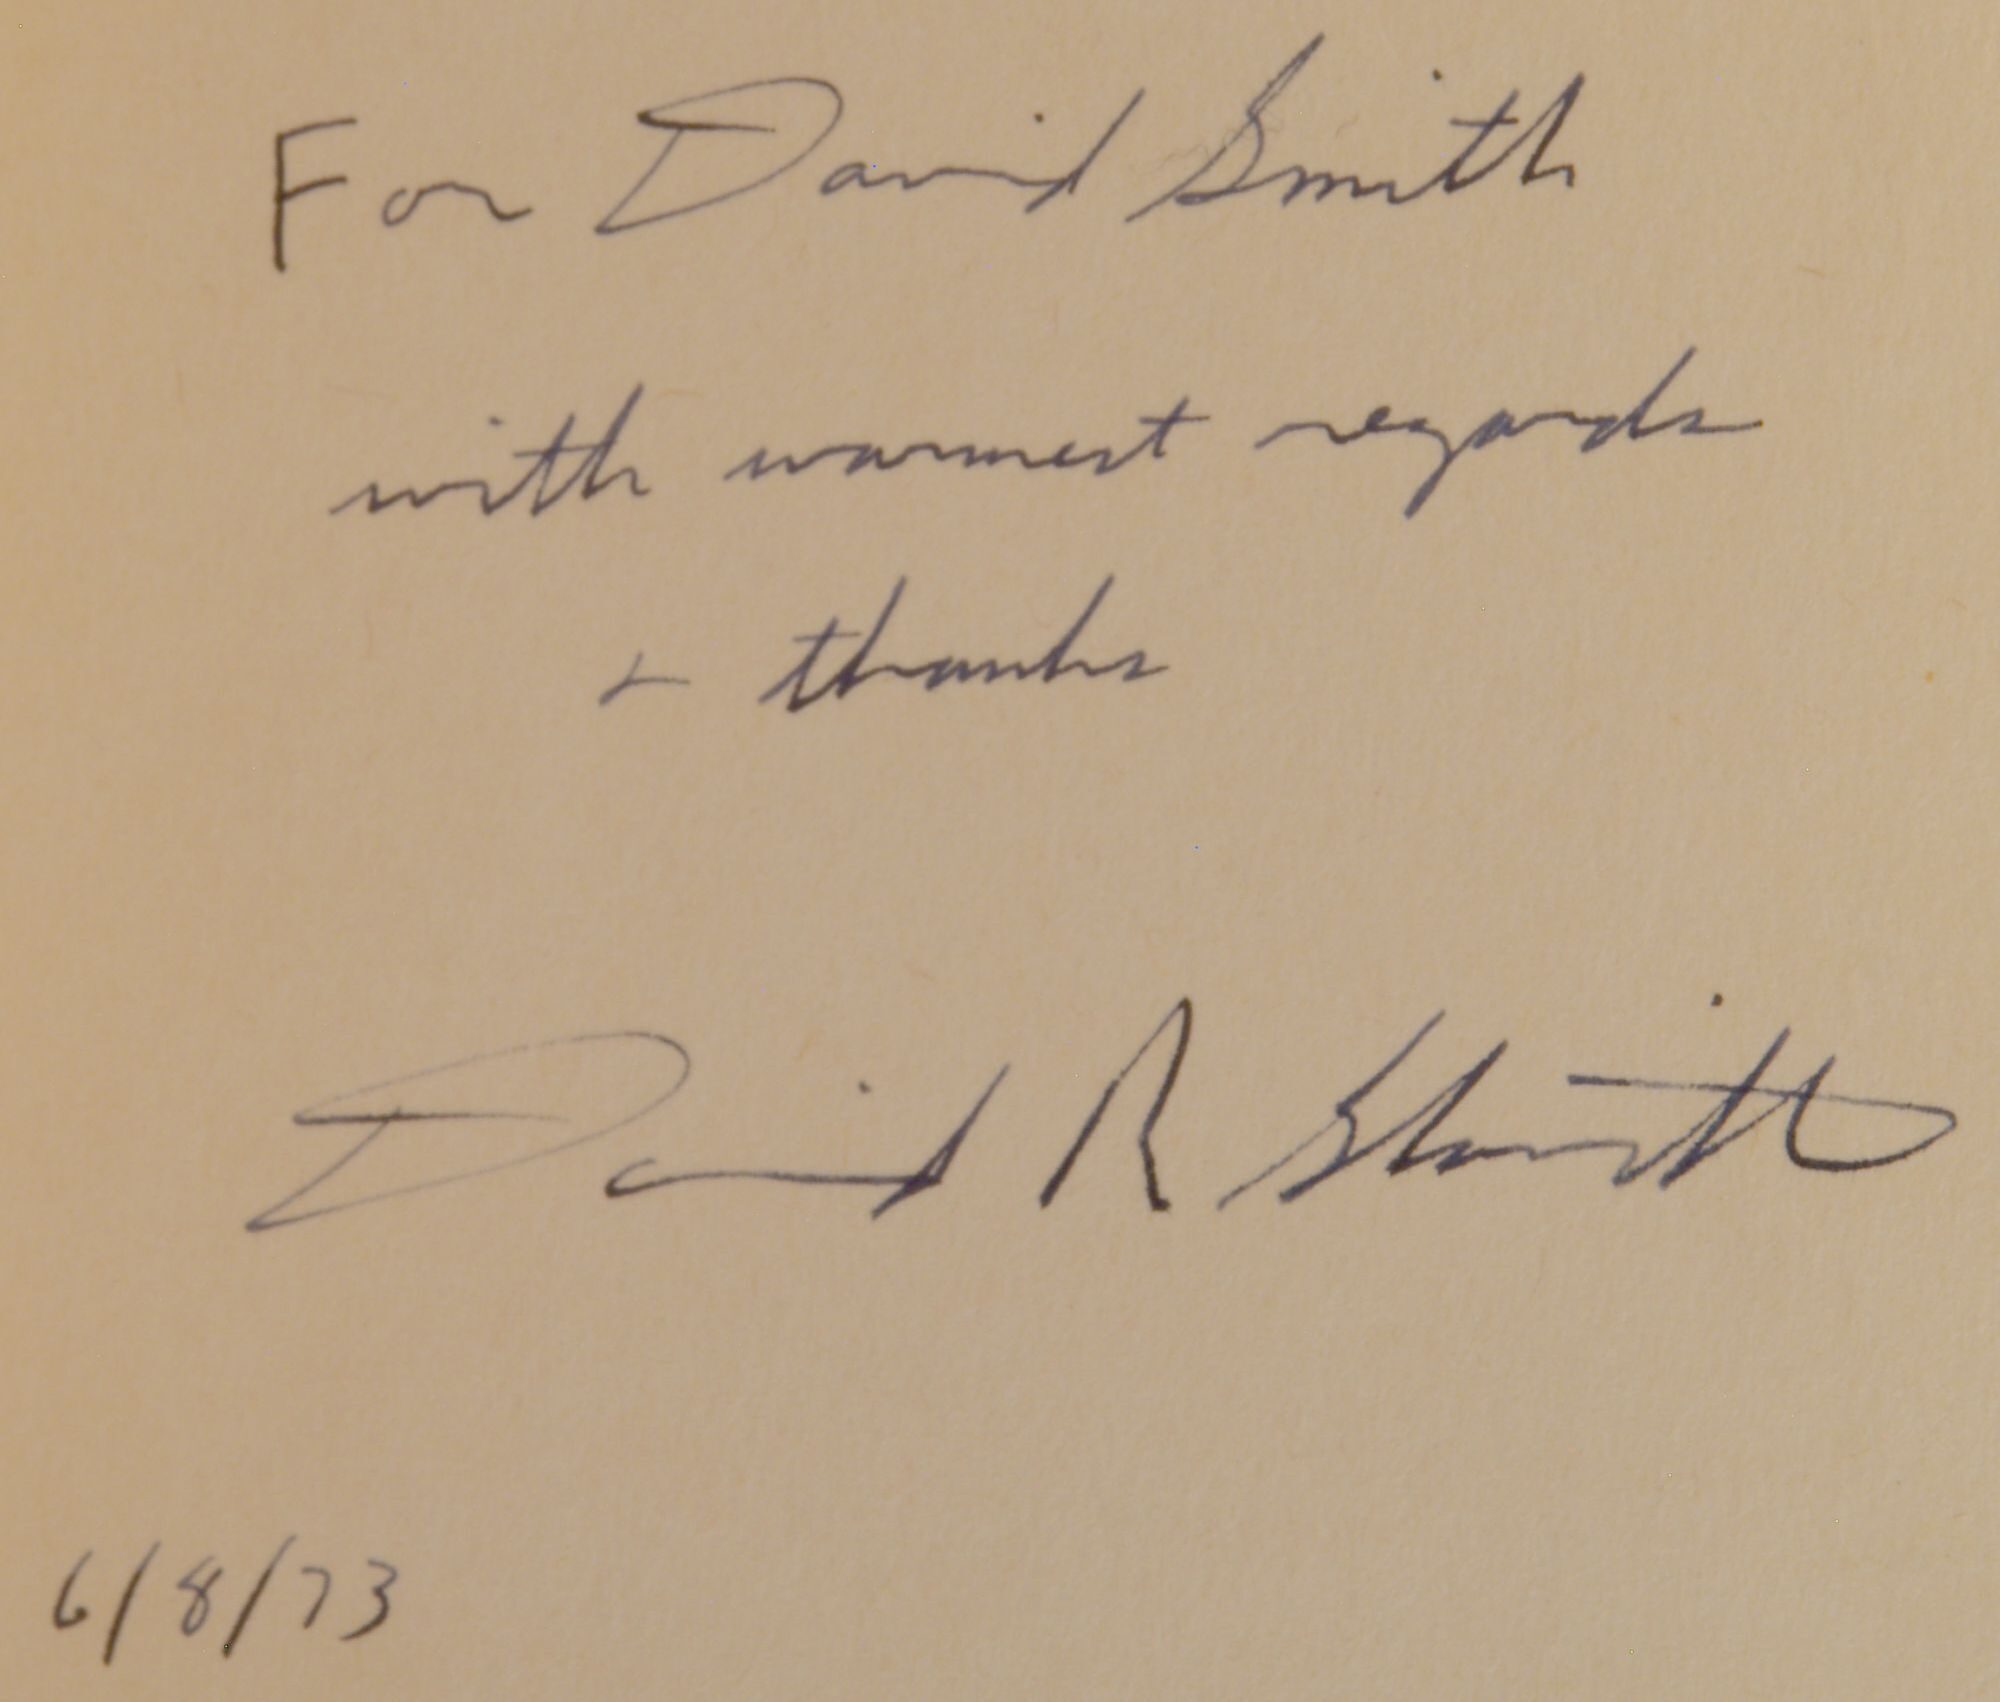 For David Smith
with warmest regards
+ thanks
David R
6/8/73